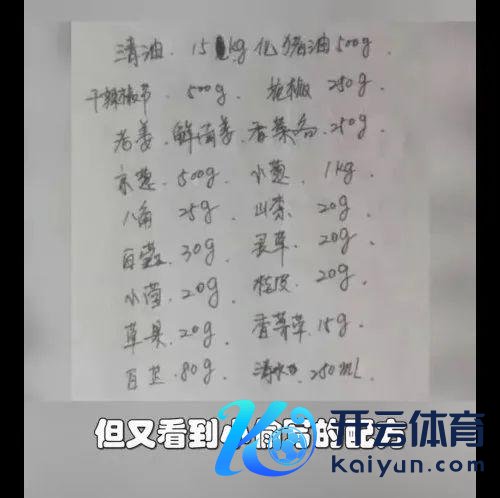 清油. 15kg 化猪油500g.
干辣椒节. 500g. 花椒 250g.
老姜. 鲜南姜. 香菜各. 250g.
京葱. 500g. 小葱. 1kg.
八角 25g. 山柰 20g.
白蔻. 30g. 灵草. 20g.
小茴. 20g. 桂皮. 20g.
草果. 20g. 香茅草. 15g.
白芷. 80g. 清水 250ML.
但又看到小 的配方
开云体育
kaiyun.com